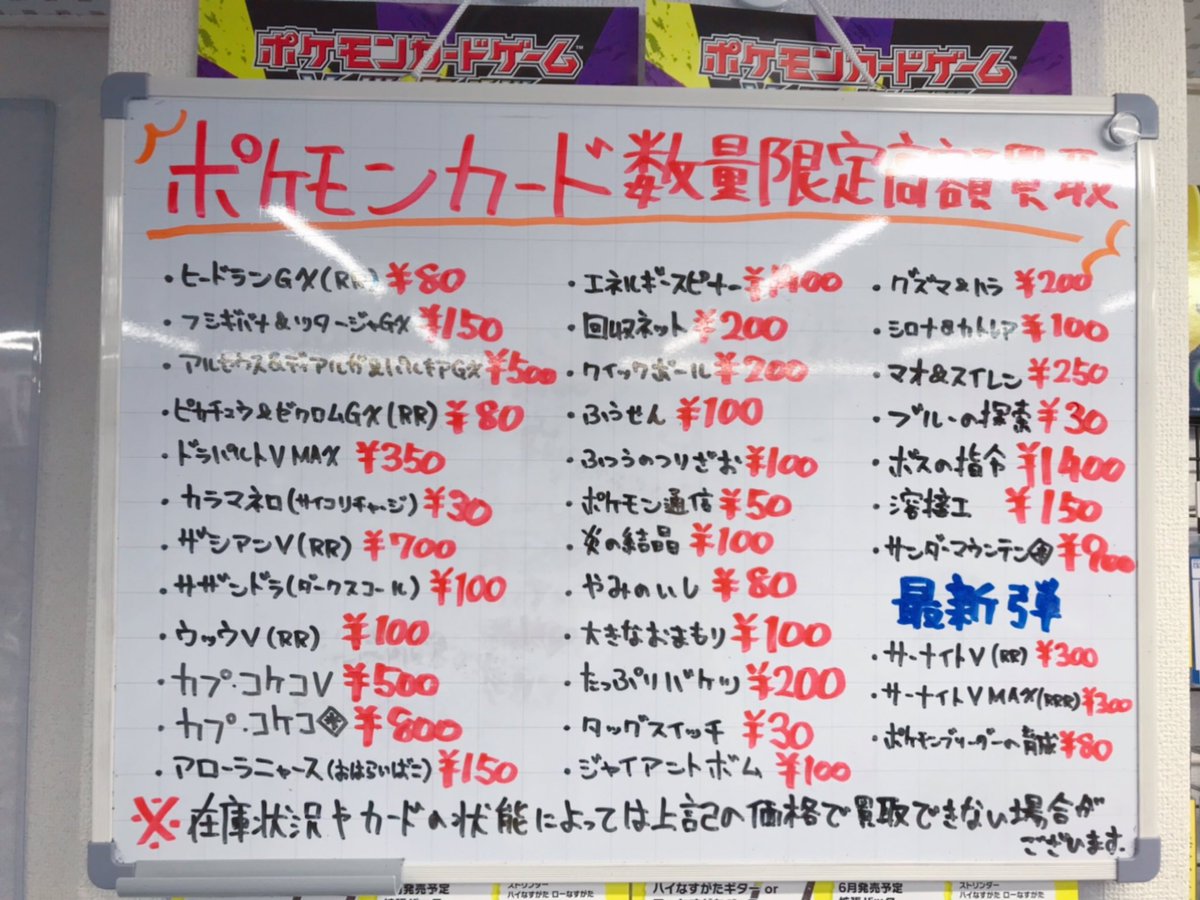 ポケモンカードゲーム
ポケモンカードゲーム
ポケモンカード数量限定高額買取
・ヒードランGX(RR) ¥80
・フシギバナ&ツタージャGX ¥150
・アルセウス&ディアルガ&パルキアGX ¥500
・ピカチュウ&ゼクロムGX(RR) ¥80
・ドラパルトVMAX ¥350
・カラマネロ(サイコリチャージ) ¥30
・ザシアンV(RR) ¥700
・サザンドラ(ダークスコール) ¥100
・ウッウV(RR) ¥100
・カプ・コケコV ¥500
・カプ・コケコ ¥800
・アローラニャース(おはらいばこ) ¥150
・エネルギースピナー
・回収ネット ¥200
・クイックボール ¥200
・ふうせん ¥100
・ふつうのつりざお ¥100
・ポケモン通信 ¥50
・炎の結晶 ¥100
・やみのいし ¥80
・大きなおまもり ¥100
・たっぷりバケツ ¥200
・タッグスイッチ ¥30
・ジャイアントボム ¥100
・グズマ&ハラ ¥200
・シロナ&カトレア ¥100
・マオ&スイレン ¥250
・ブルーの探索 ¥30
・ボスの指令 ¥1400
・溶接工 ¥150
・サンダーマウンテン ¥900
最新弾
・サーナイトV(RR) ¥300
・サーナイトVMAX(RRR) ¥300
・ポケモンブリーダーの育成 ¥80
※在庫状況やカードの状態によっては上記の価格で買取できない場合が
ございます.
月発売予定
ストリンダー
ハイなすがた ローなすがた
ハイなすがたギター or
6月発売予定
ストリンダー
ハイなすがた ローなすがた